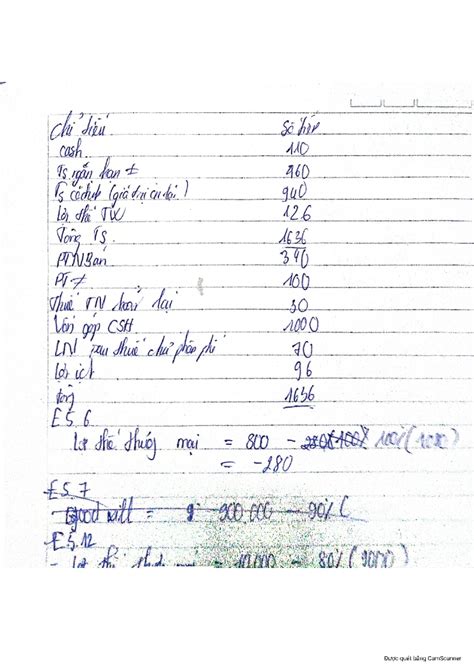 Chỉ tiêu Số tiền
cash 110
Ts ngắn hạn ≠ 460
Ts cố định (giá trị còn lại) 940
Lợi thế TM 126
Tổng Ts 1636
PTNBán 340
PT ≠ 100
Thuế TN hoãn lại 30
Vốn góp CSH 1000
LN sau thuế chưa phân phối 70
Lợi ích 96
Tổng 1636
E5.6
Lợi thế thương mại = 800 - 100% (1080)
= -280
E5.7
Good will = 900.000 - 90% (
E5.12
- Lợi thế = 10.000 - 80% (9000)
Được quét bằng CamScanner